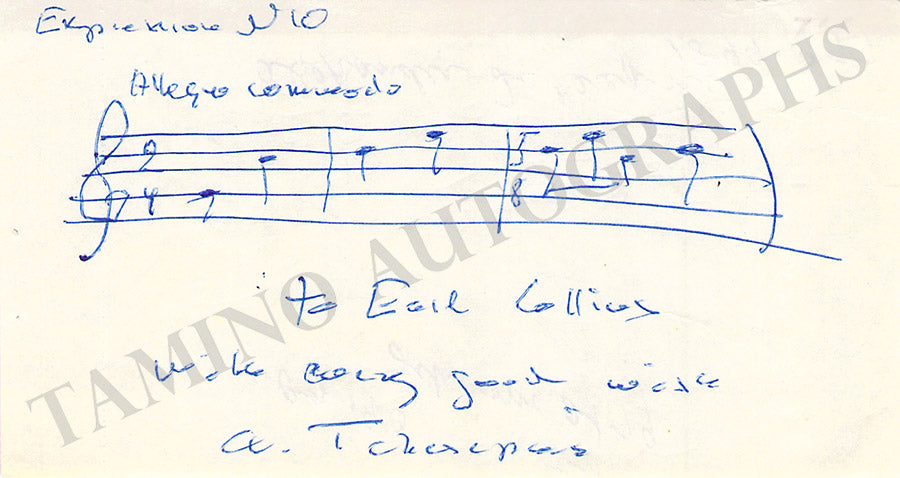 Expression N 10
Allegro commodo
2
4
5
8
to Earl Collins
with every good wish
A. Tcherepnin
TAMINO AUTOGRAPHS